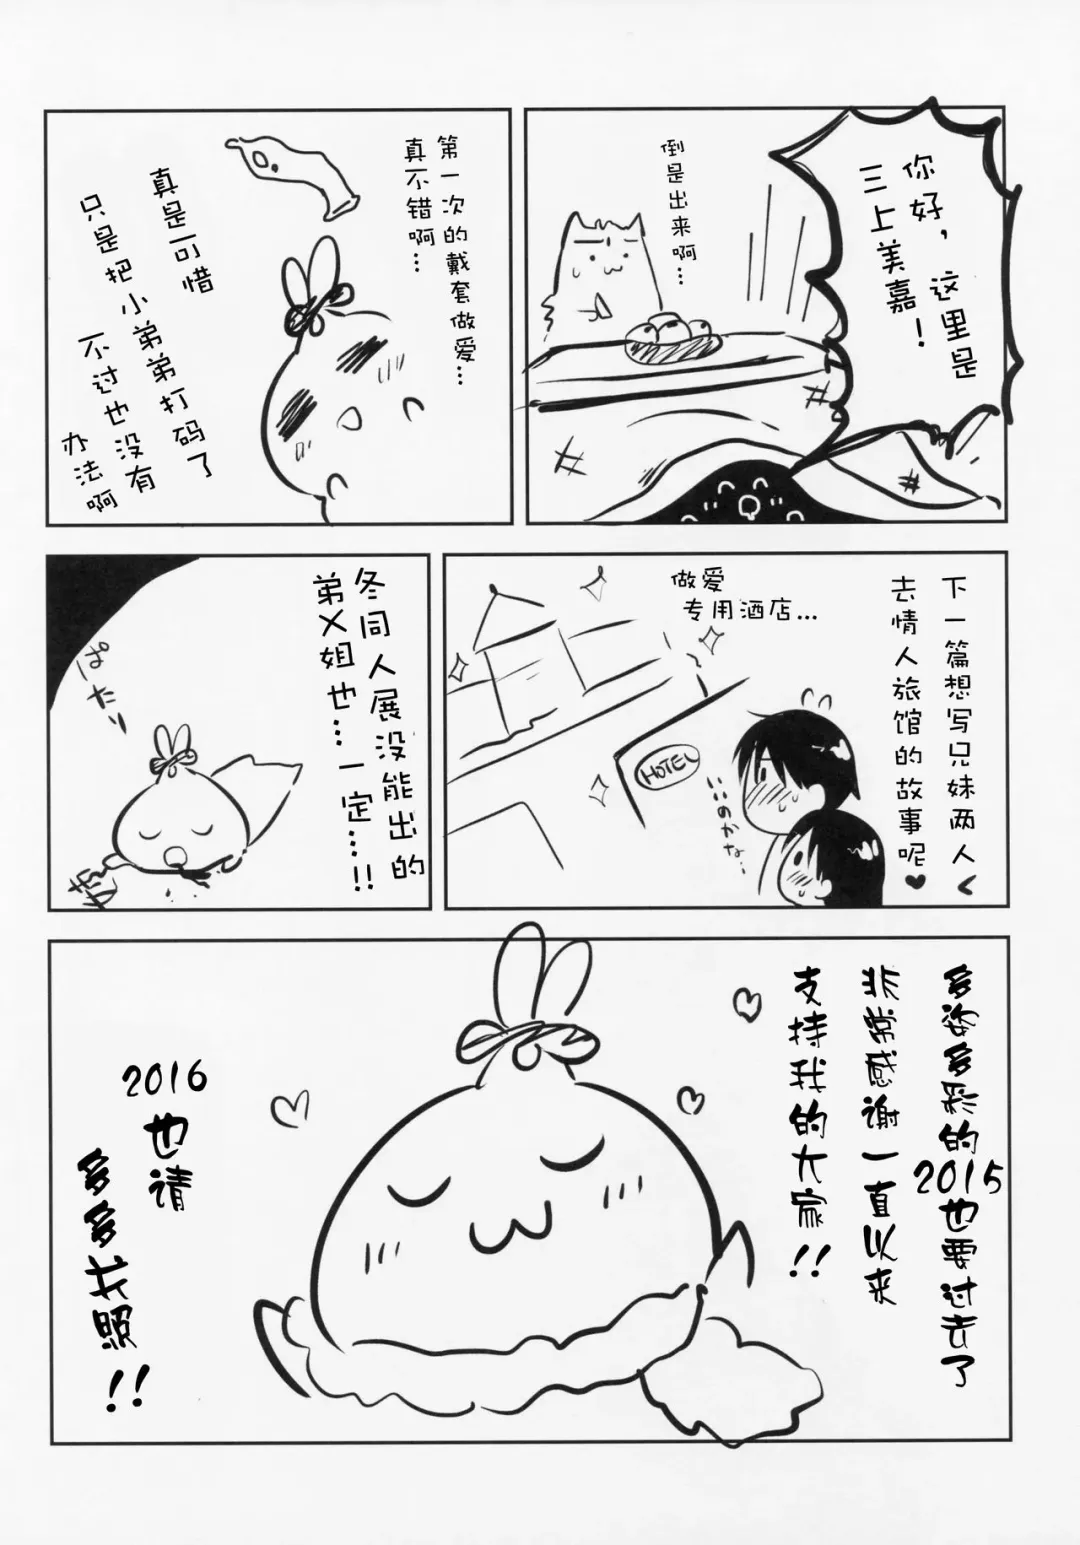 你好，这里是
三上美嘉！
倒是出来啊…
第一次的戴套做爱…
真不错啊…
真是可惜
只是把小弟弟打码了
不过也没有
办法啊
下一篇想写兄妹两人
去情人旅馆的故事呢♥
做爱
专用酒店…
HOTEL
いいのかな…
冬同人展没能出的
弟X姐也…一定…!!
ぱたり
多姿多彩的2015也要过去了
非常感谢一直以来
支持我的大家!!
2016
也请
多多关照!!